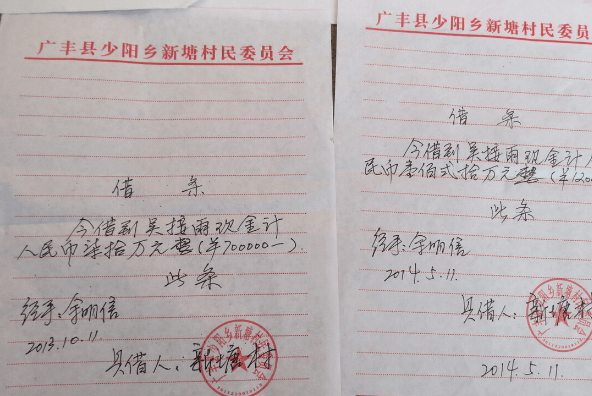 广丰县少阳乡新塘村民委员会
借 条
今借到吴接雨现金计
人民币柒拾万元整(¥700000一)
此条
经手:余明信
2013.10.11.
具借人:新塘村
广丰县少阳乡新塘村民委员
借 条
今借到吴接雨现金计人
民币壹佰贰拾万元整(¥1200
此条
经手:余明信
2014.5.11.
具借人:新塘村
2014.5.11.